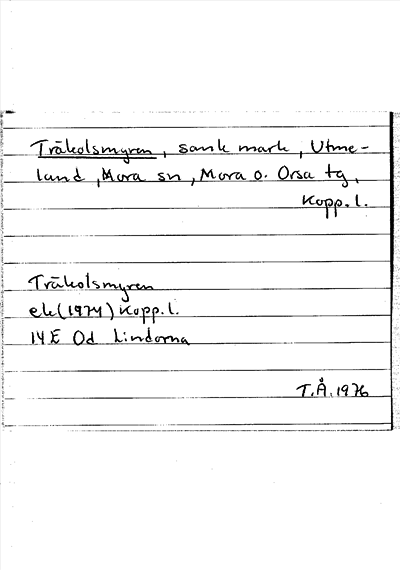 Träkolsmyren, sank mark, Utme-
land, Mora sn, Mora o. Orsa tg,
Kopp. l.
Träkolsmyren
ek (1974) Kopp. l.
14E Od Lindorna
T.Å. 1976